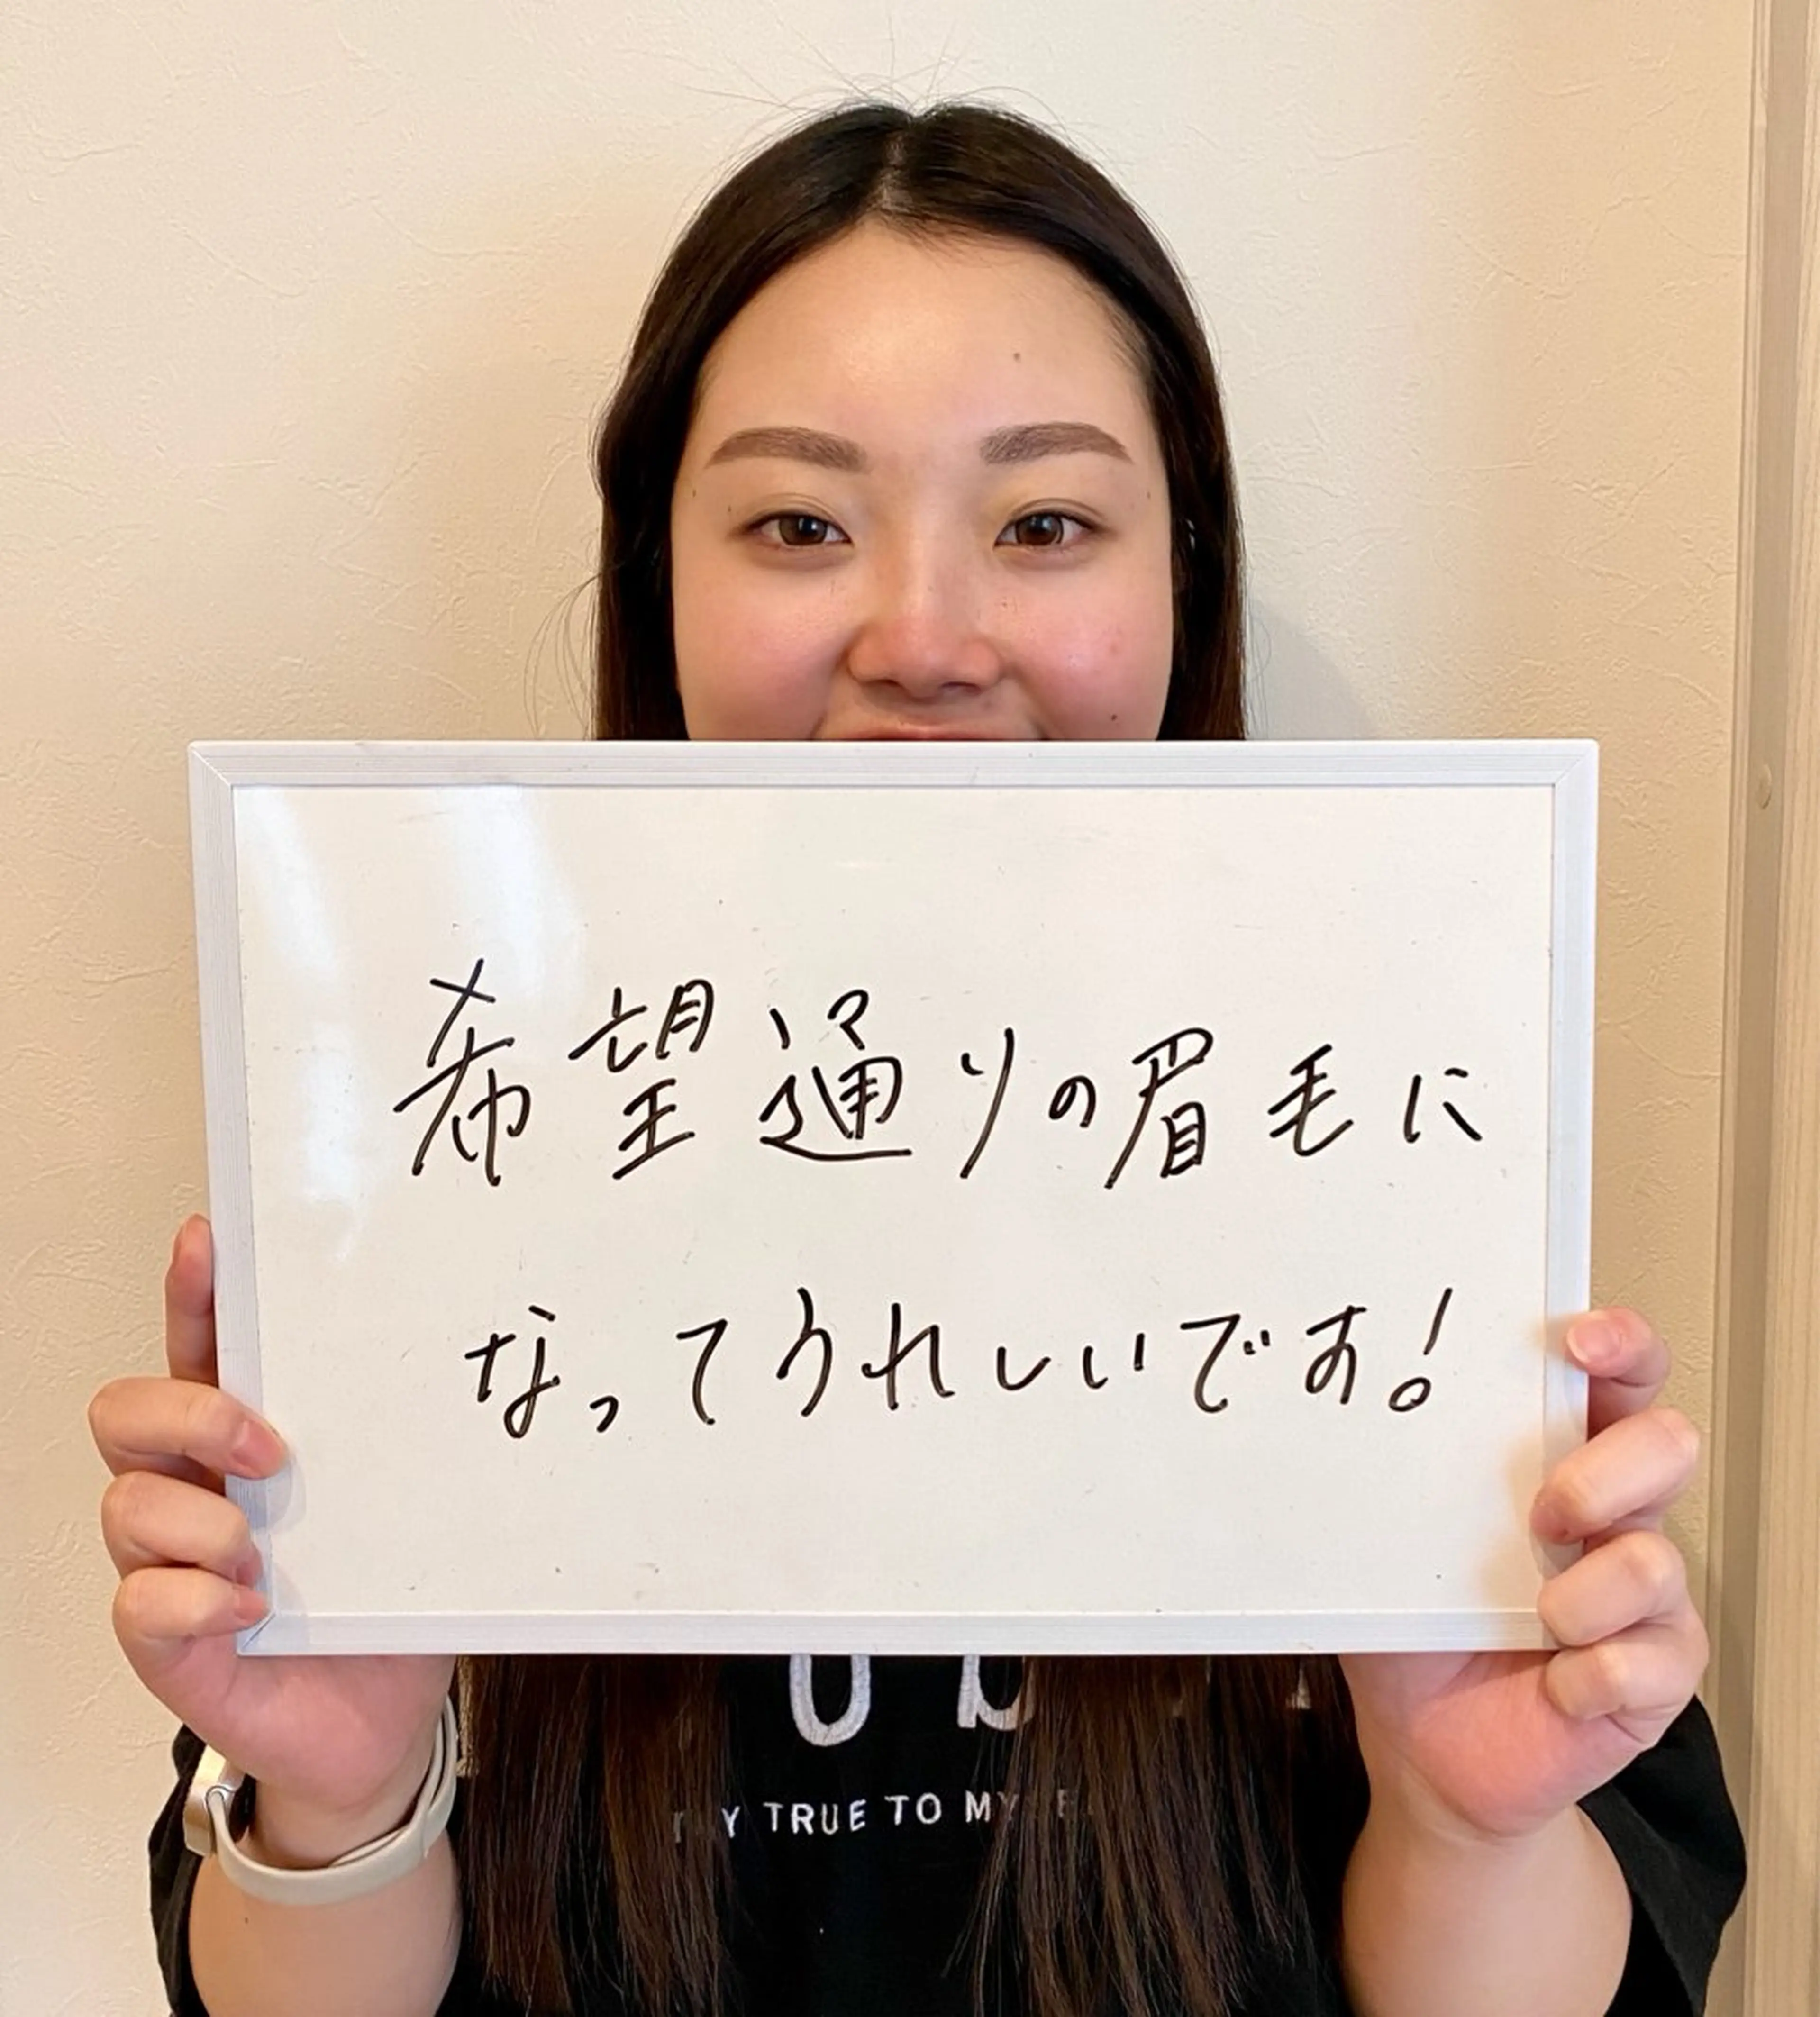 希望通りの眉毛に
なってうれしいです!
TRUE TO